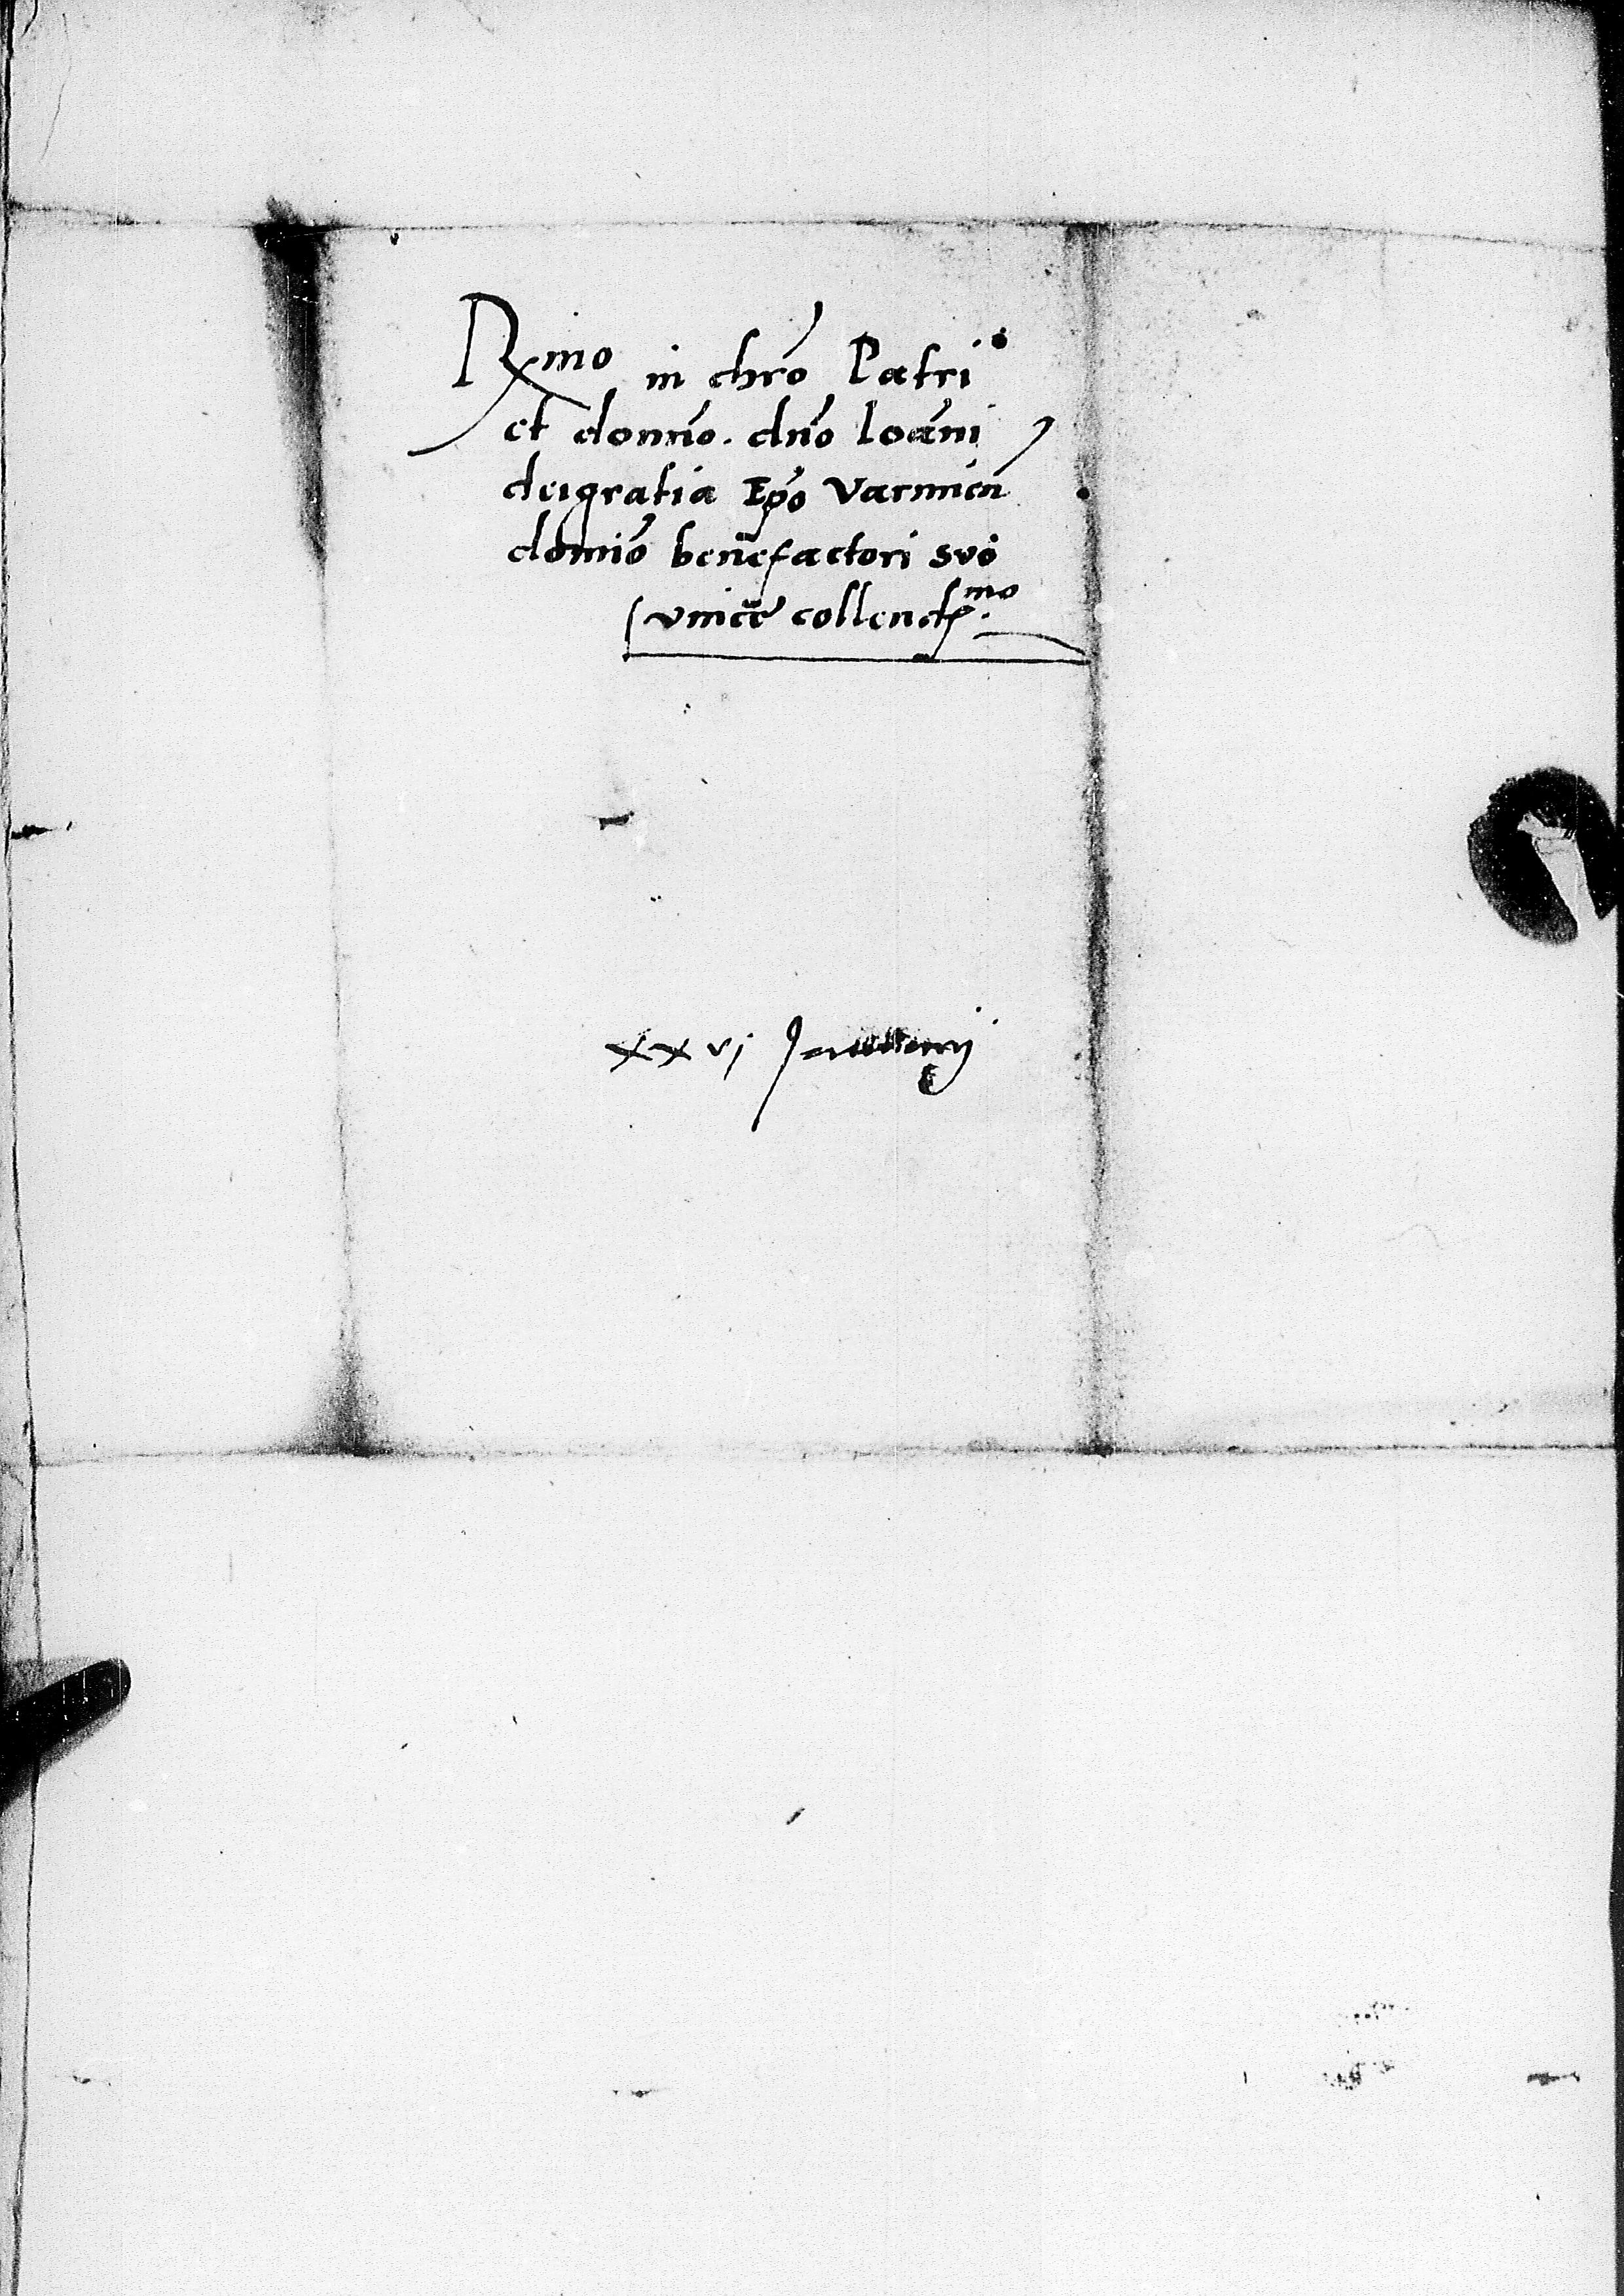 Rmo in chro Patri
et domno. dno Ioanni
dei gratia Epo Varmien
domio benefactori suo
vnice collendmo.
xxvj Januarij